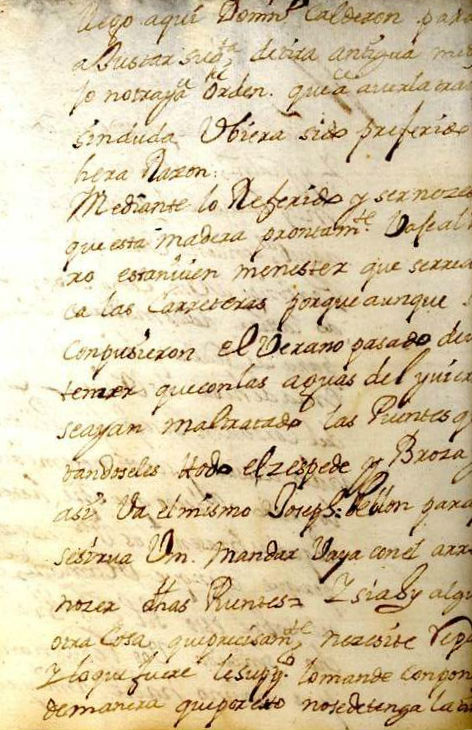 llego aquí Domin.º Calderon para
a Justar su q.ta de tira antigua
Jo notraya orden. que a averla tra
sinduda Ubiera sido preferido
hera Razon:
Mediante lo Referido y ser neze
que esta madera prontam.te Vaje al
ro estan vien menester que serre
ca las Carreteras porque aunque
Conpusieron el Verano pasado de
temer que con las aguas del yvier
seayan maltratado las Puentes q
tandoseles todo el zespede y Broza
asi Va el mismo Joseph para
se sirva Vm. mandar Vaya con el
nozer dhas Puentes= Y si a y algu
otra Cosa que precisam.te nezesite
Y lo que fuere le sup.co lo mande conpon
de manera que por esto no se detenga la